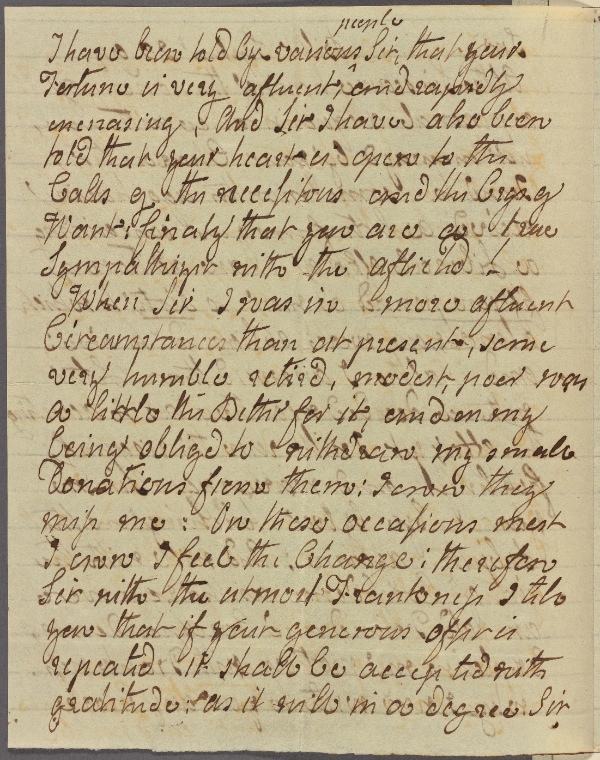 people
I have been told by various Sir, that your
Fortune is very afluent, and rapidly
increasing, And Sir I have also been
told that your heart is open to the
Calls of the necesitous and the Crys of
Want: finaly that you are a true
Sympathizer with the aflicted –
When Sir I was in more afluent
Circumstances than at present, some
very humble retird, modest, poor was
a little the Better for it, and on my
being obliged to withdraw my small
Donations from them: I own they
miss me: On these occasions most
I own I feel the Change: therefore
Sir with the utmost Frankness I tell
you that if your generous offer is
repeated it shall be accepted with
gratitude: as it will in a degree Sir